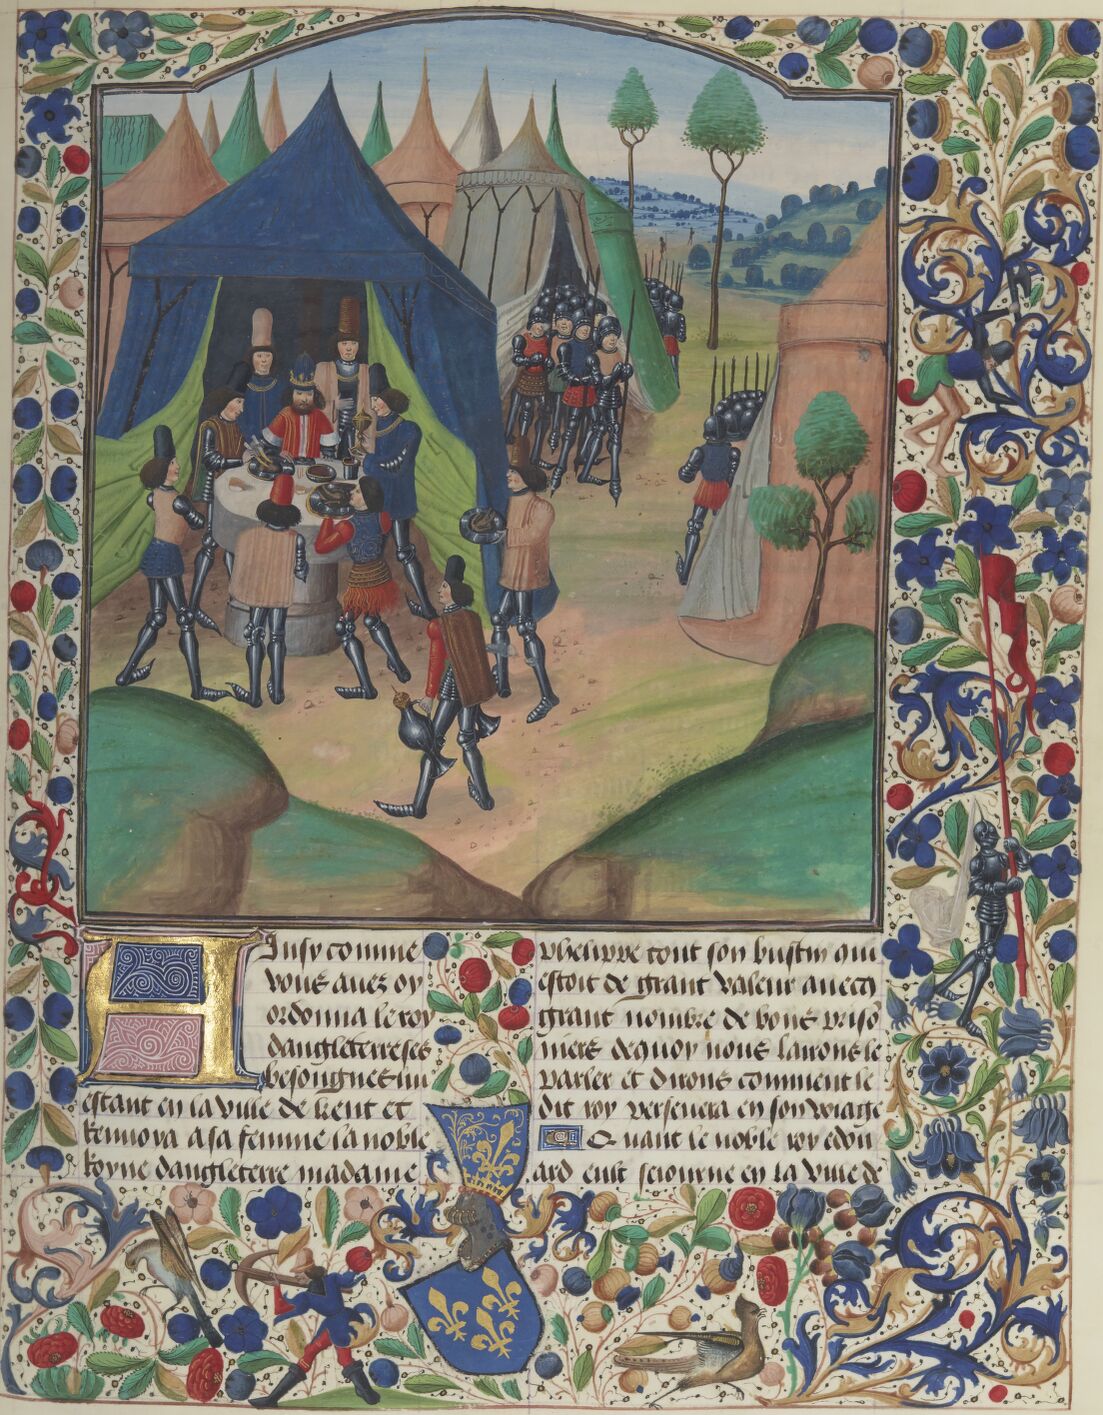 Ainsy comme
vous avez oy
ordonna le roy
dangleterre ses
besoungnes lui
estant en la ville de kent et
Renvoya a sa femme la noble
Royne dangleterre madame
phelippe tout son bustin qui
estoit de grant valeur avecq
grant nombre de bons priso
niers dequoy nous lairons le
parler et dirons comment le
dit roy persevera en son voiage
Quant le noble roy edou
ard eust seiourne en la ville de